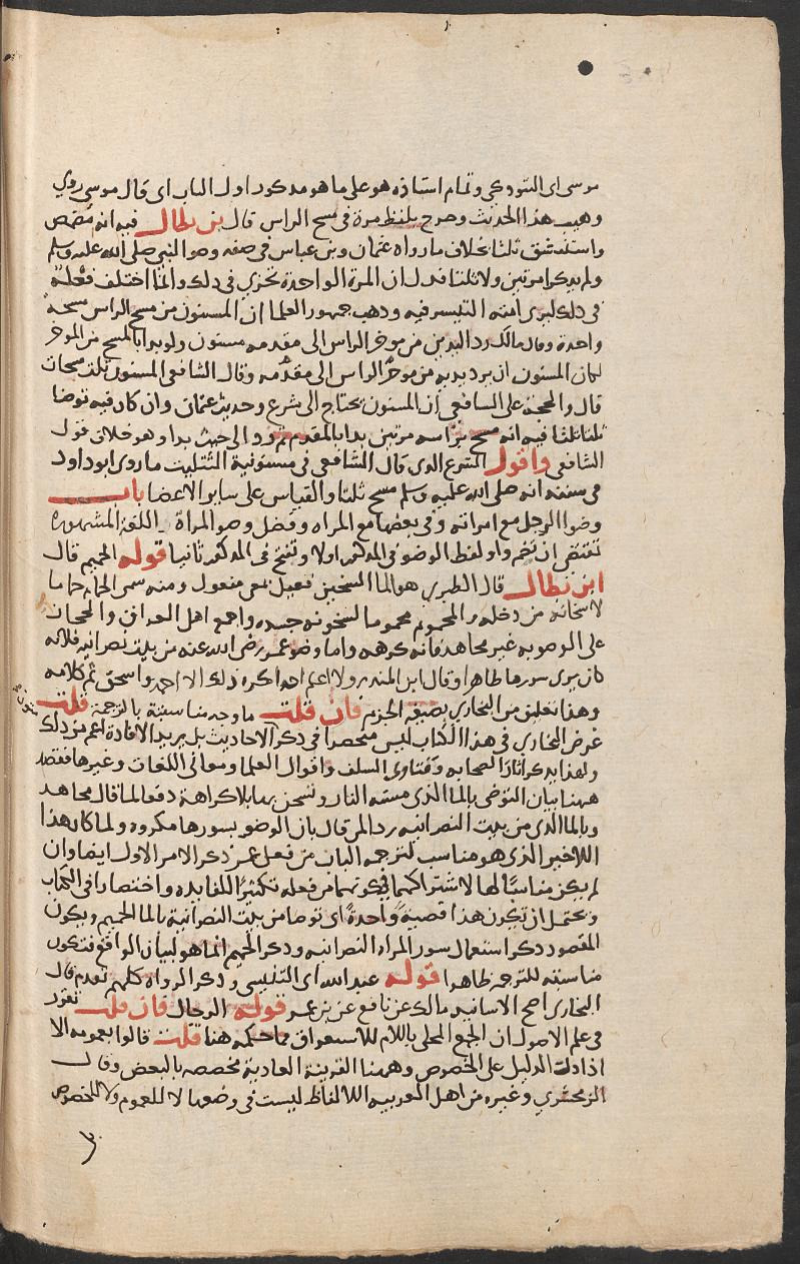 موسى اى التبوذكي وتمام اسناده هو على ما هو مذكور اول الباب اى قال موسى روي
وهيب هذا الحديث وصرح بلفظ مرة في مسح الراس قال بن بطال فيه انه تمضمض
واستنشق ثلثا بخلاف ما رواه عثمان وبن عباس في صفه وضو النبي صلى الله عليه وسلم
ولم يذكرا مرتين ولا ثلثا فدل ان المرة الواحدة تجزي في ذلك وانما اختلف فعله
في ذلك ليرى امته التيسر فيه وذهب جمهور العلما ان المسنون من مسح الراس مسحة
واحدة وقال مالك رد اليدين من موخر الراس الى مقدمه مسنون ولو بدا بالمسح من الموخر
لكان المسنون ان يرد يديه من موخر الراس الى مقدمه وقال الشافعي المسنون ثلث مسحات
قال والحجة على الشافعي ان المسنون يحتاج الى شرع وحديث عثمان وان كان فيه توضا
ثلثا ثلثا فيه انه مسح براسه مرتين بدا بالمقدم ثم رد الى حيث بدا وهو خلاف قول
الشافعي واقول الشرع الذى قال الشافعي في مسنونية التثليث ما روى ابو داود
في سننه انه صلى الله عليه وسلم مسح ثلثا والقياس على ساير الاعضا باب
وضوا الرجل مع امراته وفي بعضها مع المراه وفضل وضو المراة اللغة المشهوره
تقتضى ان تضم واو لفظ الوضو في المذكور اولا وتفتح في المذكور ثانيا قوله الحميم قال
ابن بطال قال الطبري هو الما السخين فعيل بمعنى مفعول ومنه سمى الحمام حماما
لاسخانه من دخله والمحموم محموما لسخونه جسده واجمع اهل العراق والحجاز
على الوضو به غير مجاهد فانه كرهه واما وضو عمر رضى الله عنه من بيت نصرانيه فلانه
كان يرى سورها طاهرا وقال ابن المنذر ولا اعلم احدا كره ذلك الا احمد واسحق تم كلامه
وهذا تعليق من البخاري بصيغه الجزم فان قلت ما وجه مناسبته بالترجمة قلت
غرض البخاري في هذا الكتاب ليس منحصرا في ذكر الاحاديث بل يريد الافادة اعم من ذلك
ولهذا يذكر آثار الصحابه وفتاوى السلف واقوال العلما ومعانى اللغات وغيرها فقصد
ههنا بيان التوضى بالما الذى مسته النار وتسخن بها بلا كراهة دفعا لما قال مجاهد
وبالما الذى من بيت النصرانيه ردا لمن قال بان الوضو بسورها مكروه ولما كان هذا
الاخير الذى هو مناسب لترجمه الباب من فعل عمر ذكر الامر الاول ايضا وان
لم يكن مناسبا لها لاشتراكهما في كونهما من فعله تكثيرا للفايده واختصارا فى الكتاب
ويحتمل ان يكون هذا قصية واحدة اى توضا من بيت النصرانية بالما الحميم ويكون
المقصود ذكر استعمال سور المراه النصرانيه وذكر الحميم انما هو لبيان الواقع فتكون
مناسبته للترجمه ظاهرا قوله عبد الله اى التنيسى وذكر الرواه كلهم تقدم قال
البخاري اصح الاسانيد مالك عن نافع عن بن عمر قوله الرجال فان قلت تقرر
في علم الاصول ان الجمع المحلى باللام للاستغراق فما حكمه هنا قلت قالوا بعمومه الا
اذا دلت الدليل على الخصوص وههنا القرينة العادية مخصصه بالبعض وقال
الزمخشري وغيره من اهل العربيه الالفاظ ليست في وضعها لا للعموم ولا للخصوص